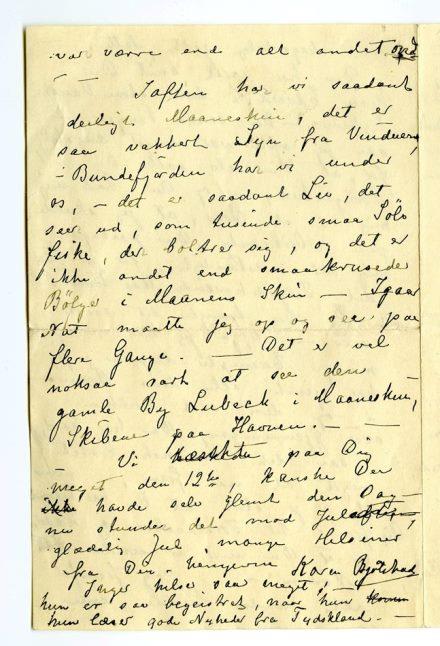 var værre end alt andet ondt
Iaften har vi saadant
deiligt Maaneskin, det er
saa vakkert Syn fra Vinduerne,
i Bundefjorden har vi under
os, – det er saadant Liv, det
seer ud, som tusinde smaa Sölv
fiske, der boltrer sig, og det er
ikke andet end smaa krusede
Bölger i Maanens Skin — Igaar
Nat maatte jeg op og see paa
flere Gange. — Det er vel
noksaa rart at see den
gamle By Lubeck i Maaneskin,
Skibene paa Havnen. — —
Vi tænkte paa Dig
meget den 12te, kanske Du
ikke havde selv glemt den Dag —
nu stunder det mod Jul
glædelig Jul, mange Hilsener
fra Din hengivne Karen Bjölstad
Inger hilser saa meget,
hun er saa begeistret, naar hun
hun læser gode Nyheder fra Tydskland. —